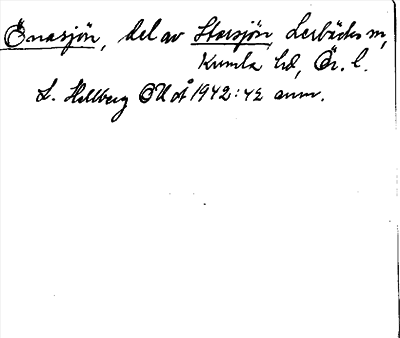 Önasjön, del av Storsjön, Lerbäcks sn,
Kumla hd, Ör. l.
L. Hellberg OUÅ 1942:42 anm.